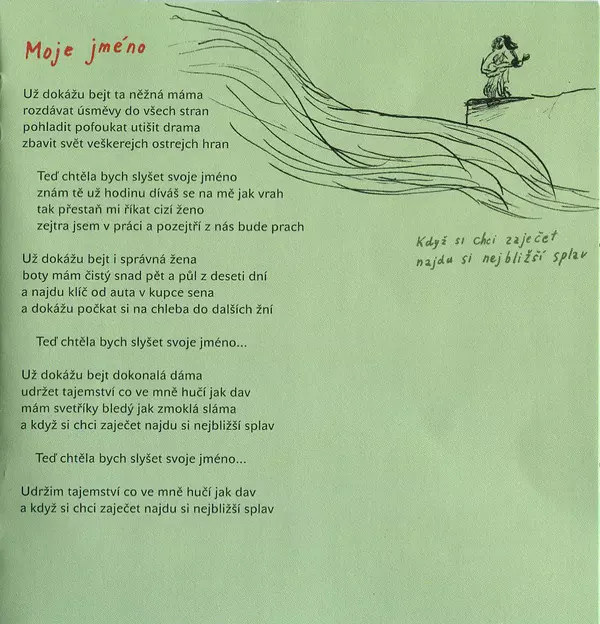 Moje jméno
Už dokážu bejt ta něžná máma
rozdávat úsměvy do všech stran
pohladit pofoukat utišit drama
zbavit svět veškerejch ostrejch hran
Teď chtěla bych slyšet svoje jméno
znám tě už hodinu díváš se na mě jak vrah
tak přestaň mi říkat cizí ženo
zejtra jsem v práci a pozejtří z nás bude prach
Už dokážu bejt i správná žena
boty mám čistý snad pět a půl z deseti dní
a najdu klíč od auta v kupce sena
a dokážu počkat si na chleba do dalších žní
Teď chtěla bych slyšet svoje jméno...
Už dokážu bejt dokonalá dáma
udržet tajemství co ve mně hučí jak dav
mám svetříky bledý jak zmoklá sláma
a když si chci zaječet najdu si nejbližší splav
Teď chtěla bych slyšet svoje jméno...
Udržim tajemství co ve mně hučí jak dav
a když si chci zaječet najdu si nejbližší splav
Když si chci zaječet
najdu si nejbližší splav